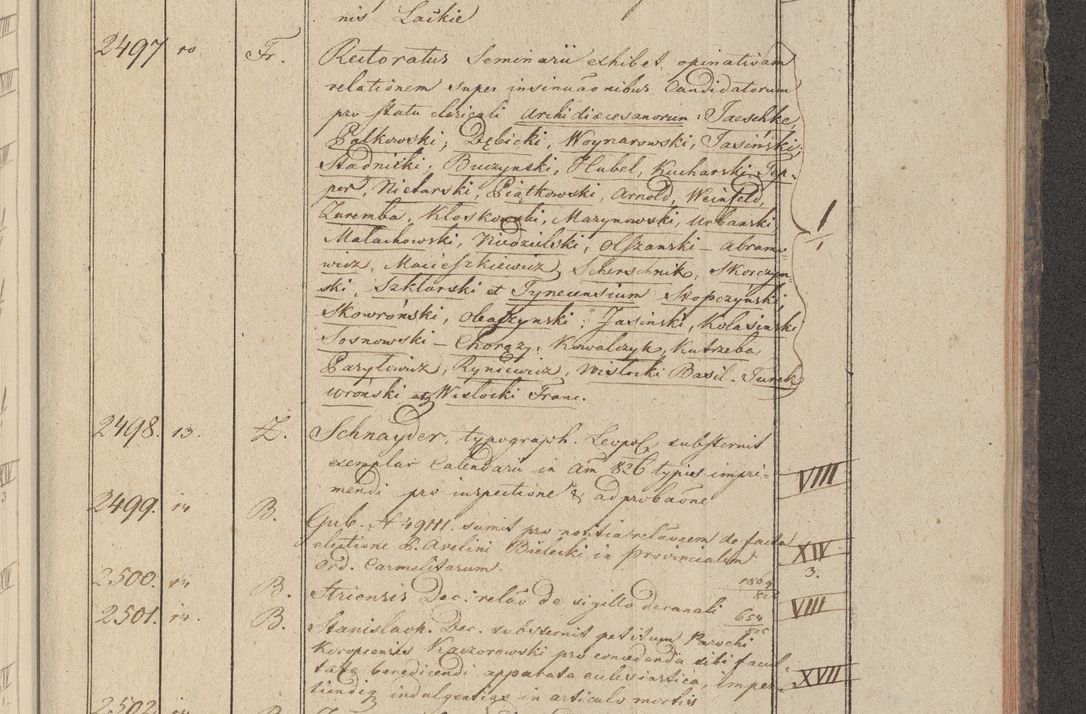 nis Lackie
2497 10 Fr. Rectoratus Seminarii exhibet opinativam
relationem super insinuaõnibus Candidatorum
pro statu clericali Archi diœcesanorum: Jaeschke
Pałkowski; Dębicki, Woynarowski, Jasinski,
Stadnicki, Buczynski, Hubel, Kucharski, Tep-
per, Nietarski, Piątkowski, Arnold, Weinfeld,
Zaremba, Kłoskowski, Mazynowski, Urbanski
Małachowski, Niedzielski, Olszanski – Abramo
wicz, Macieszkiewicz, Scherschnik, Skorczyn
ski, Szklarski et Tynecensium Stopczynski,
Skowroński, Obaszynski; Jasinski, Kolasinski
Sosnowski – Chorąży, Kowalczyk, Kutrzeba
Paryłowicz, Ryniewicz, Wisłocki Basil. Turek
wronski et Wisłocki Franc.
2498. 13. Z. Schnayder, typograph. Leopol. substernit
exemplar Calendarii in Am 826 typis impri-
mendi pro inspectione & adprobaõne VIII
2499. 14 B. Gub. N 49111. sumit pro notitia relaõnem de facta
electione P. Avelini Bielecki in provincialem XIV
Ord. Carmelitarum. 3.
2500. 14 B. Striensis Dec. relaõ de sigillo decanali VIII
2501. 14. B. Stanislaop. Dec. substernit petitum Parochi 654
Koropiensis Kaczorowski pro concedenda sibi facul-
tate benedicendi apparata ecclesiastica, imper- XVII
tiendiq indulgentias in articulo mortis
2502 14 B